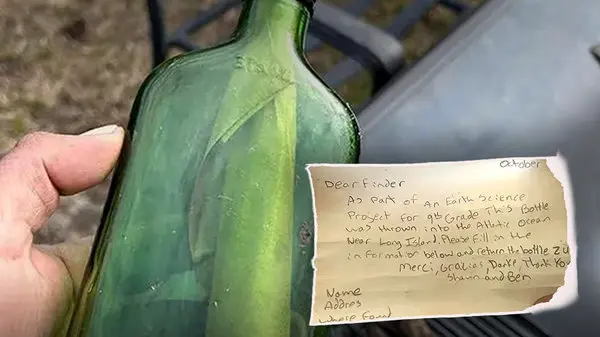 October
Dear Finder
As part of An Earth Science
Project for 9th Grade This Bottle
was thrown into the Atlatic Ocean
Near Long Island. Please fill in the
information below and return the bottle
Merci, Gracias, Danke, Thank You
Shawn and Ben
Name
Addres
Where Found